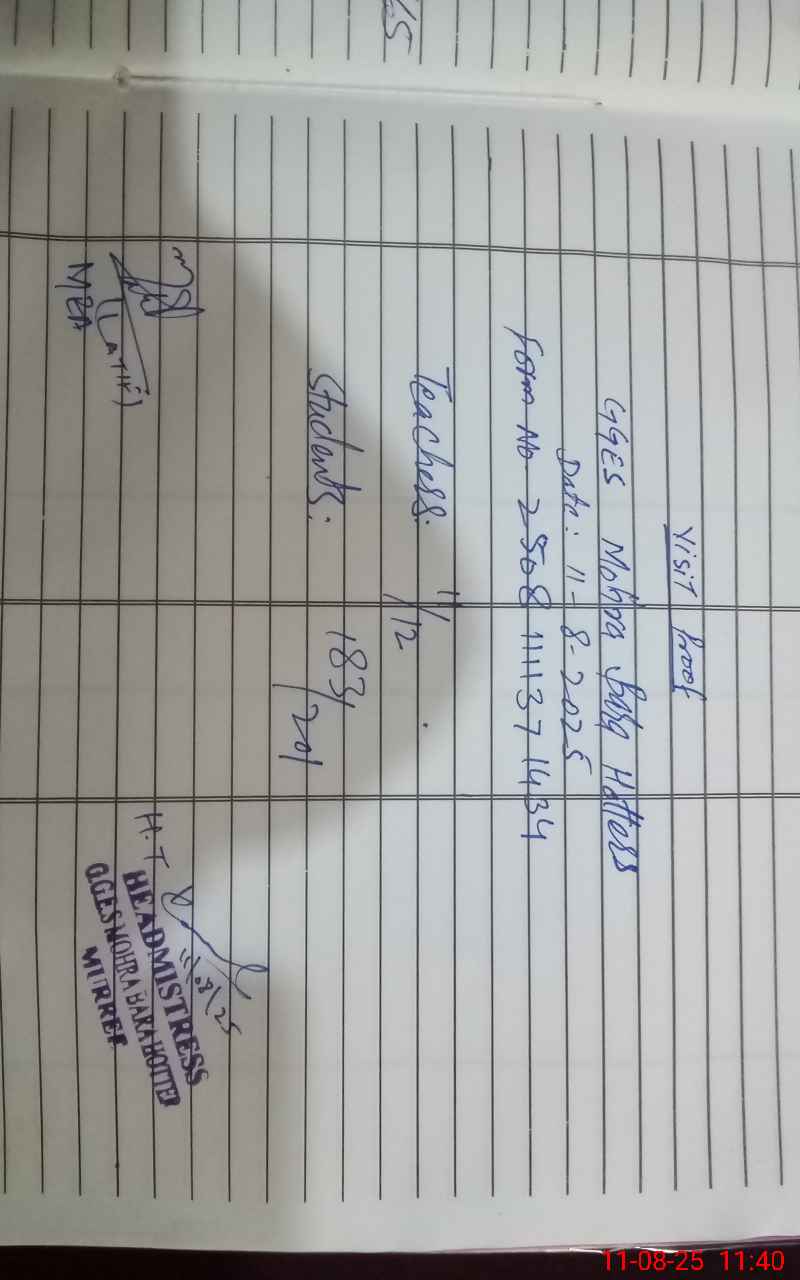 Visit Proof
GGES Mohra Bara Hotters
Date: 11-8-2025
Form No 2508111371434
Teachers: 11/12
Students: 183/201
(LATIF)
MEA
H.T
11.8.25
HEADMISTRESS
G.G.E.S MOHRA BARA HOTTER
MURREE
11-08-25 11:40